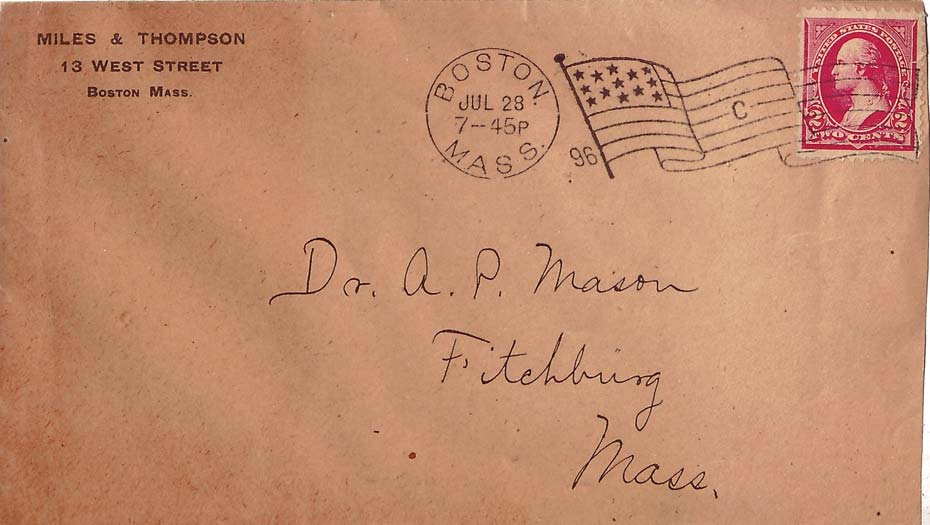 MILES & THOMPSON
13 WEST STREET
BOSTON MASS.
BOSTON, MASS.
JUL 28
7-45P
96
C
UNITED STATES POSTAGE
2 2
TWO CENTS
Dr. A. P. Mason
Fitchburg
Mass.